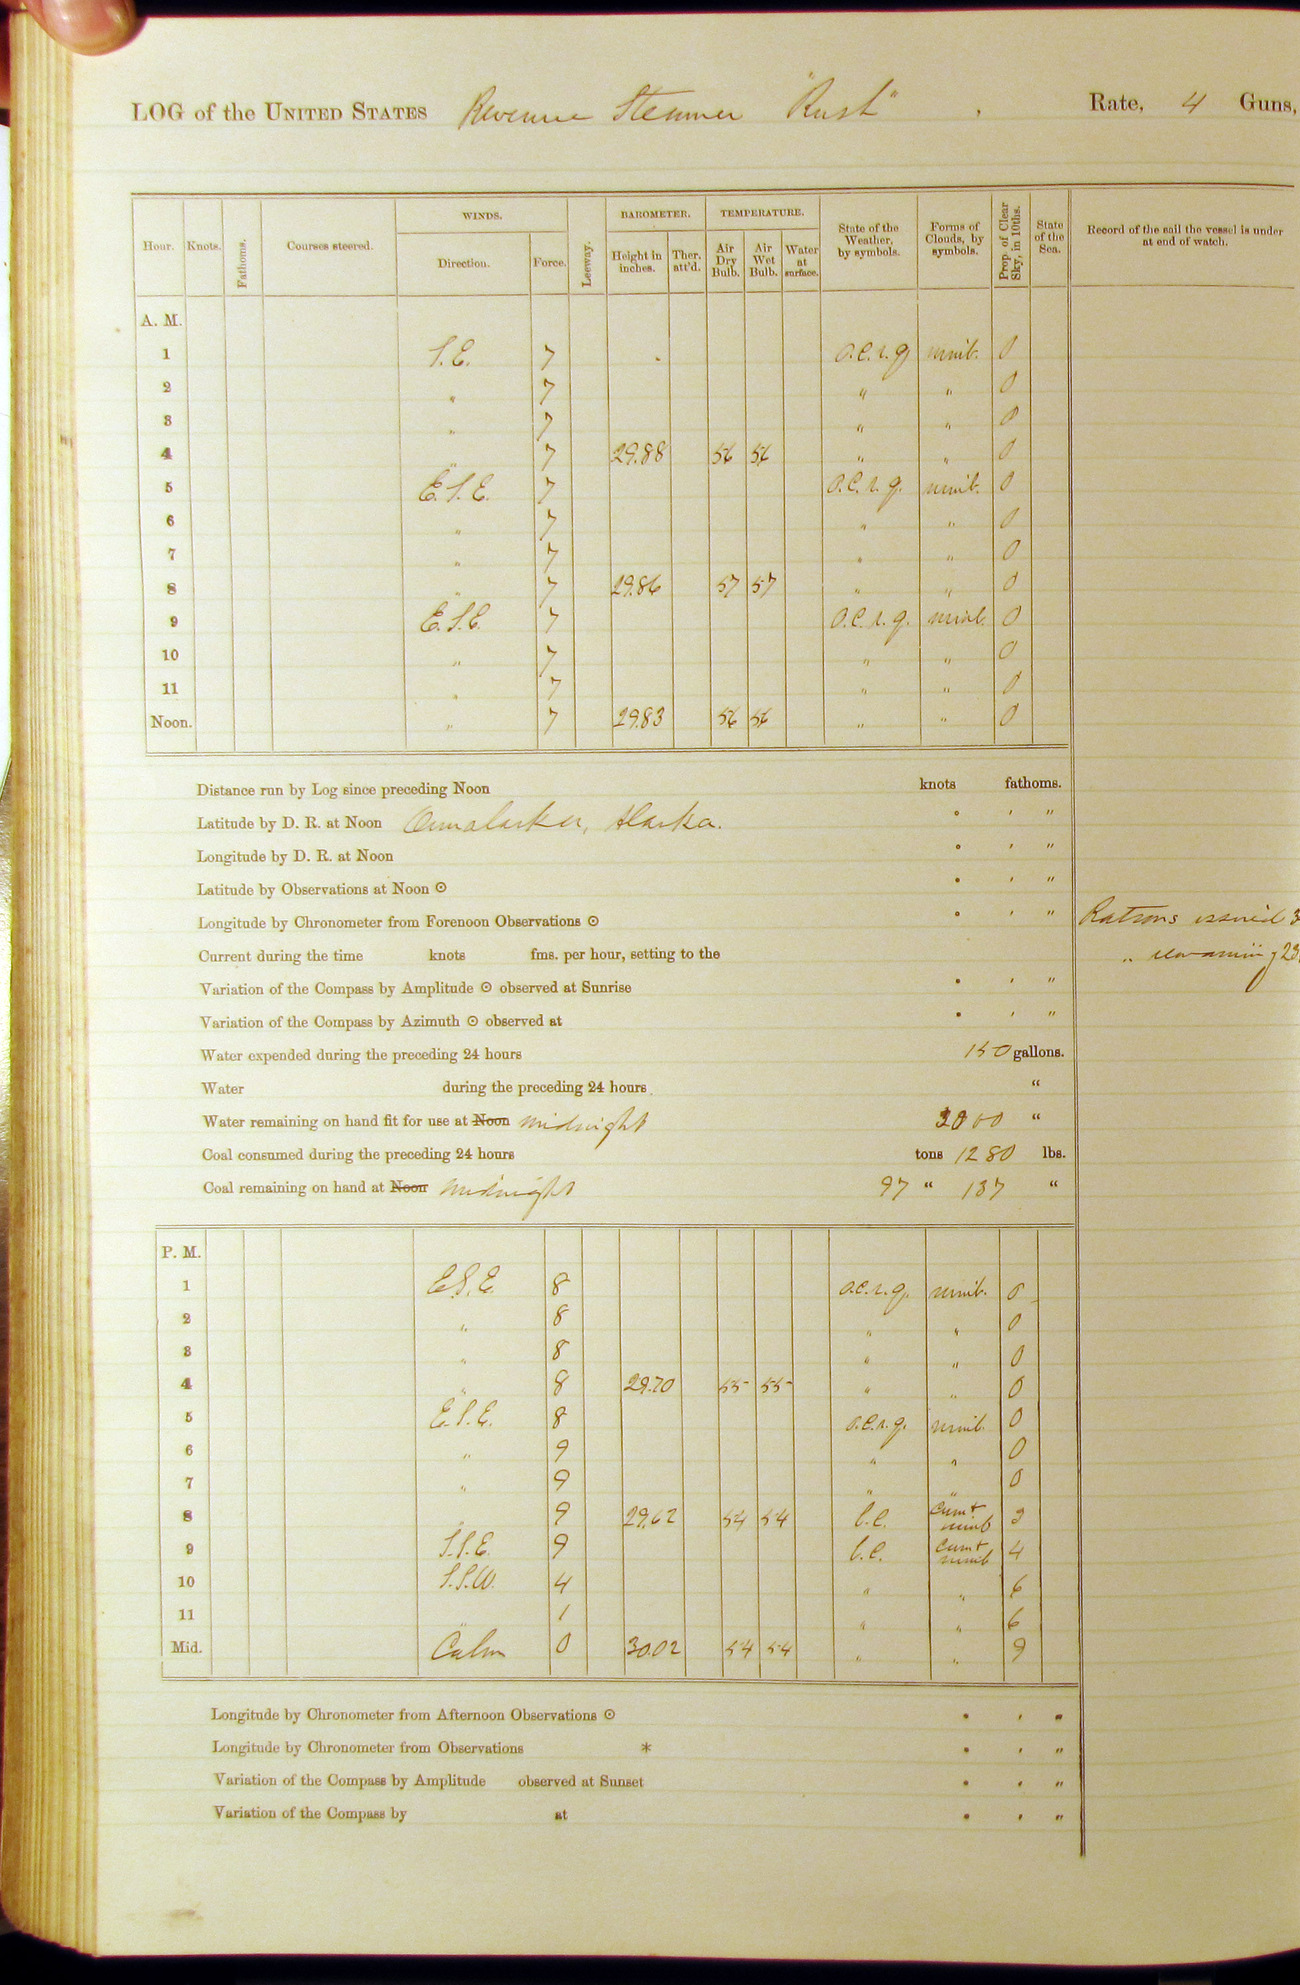 LOG of the UNITED STATES Revenue Steamer "Rush", Rate, 4 Guns,
WINDS. BAROMETER. TEMPERATURE.
Hour. Knots. Fathoms. Courses steered. Direction. Force. Leeway. Height in inches. Ther. att'd. Air Dry Bulb. Air Wet Bulb. Water at surface. State of the Weather, by symbols. Forms of Clouds, by symbols. Prop. of Clear Sky, in 10ths. State of the Sea. Record of the sail the vessel is under at end of watch.
A. M.
1 S.E. 7 o.c.r.g nimb. 0
2 " 7 " " 0
3 " 7 " " 0
4 " 7 29.88 56 56 " " 0
5 E.S.E. 7 o.c.r.g. nimb. 0
6 " 7 " " 0
7 " 7 " " 0
8 " 7 29.86 57 57 " " 0
9 E.S.E. 7 o.c.r.g. nimb. 0
10 " 7 " " 0
11 " 7 " " 0
Noon. " 7 29.83 56 56 " " 0
Distance run by Log since preceding Noon knots fathoms.
Latitude by D. R. at Noon Alaska. ° ' "
Longitude by D. R. at Noon ° ' "
Latitude by Observations at Noon ⊙ ° ' "
Longitude by Chronometer from Forenoon Observations ⊙ ° ' " Rations issued
Current during the time knots fms. per hour, setting to the " remaining
Variation of the Compass by Amplitude ⊙ observed at Sunrise ° ' "
Variation of the Compass by Azimuth ⊙ observed at ° ' "
Water expended during the preceding 24 hours 150 gallons.
Water during the preceding 24 hours. "
Water remaining on hand fit for use at Noon midnight "
Coal consumed during the preceding 24 hours tons 1280 lbs.
Coal remaining on hand at Noon midnight 97 " 137 "
P. M.
1 E.S.E. 8 o.c.r.g. nimb. 0
2 " 8 " " 0
3 " 8 " " 0
4 " 8 29.70 55 55 " " 0
5 E.S.E. 8 o.c.r.g. nimb. 0
6 " 9 " " 0
7 " 9 " " 0
8 " 9 29.62 54 54 b.c. cum+ nimb 3
9 S.S.E. 9 b.c. cum+ nimb 4
10 S.S.W. 4 " " 6
11 " 1 " " 6
Mid. Calm 0 30.02 54 54 " " 9
Longitude by Chronometer from Afternoon Observations ⊙ ° ' "
Longitude by Chronometer from Observations * ° ' "
Variation of the Compass by Amplitude observed at Sunset ° ' "
Variation of the Compass by at ° ' "